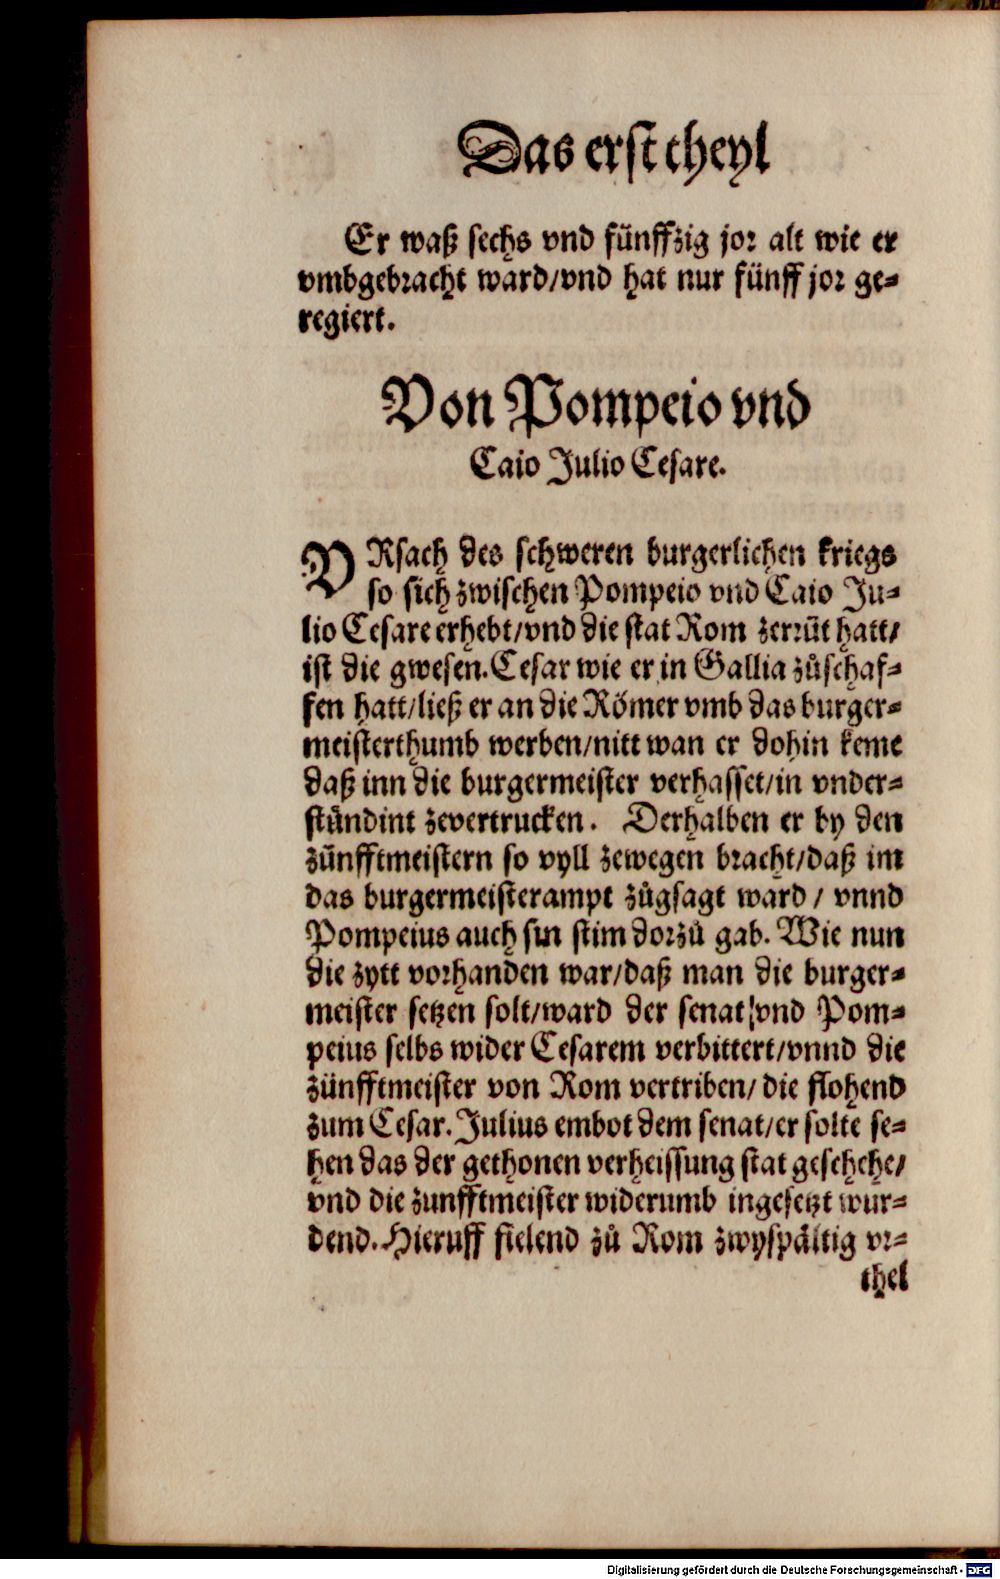 Das erst theyl
Er waß sechs vnd fünffzig jor alt wie er
vmbgebracht ward/vnd hat nur fünff jor ge⸗
regiert.
Von Pompeio vnd
Caio Julio Cesare.
VRsach des schweren burgerlichen kriegs
so sich zwischen Pompeio vnd Caio Ju⸗
lio Cesare erhebt/vnd die stat Rom zerrüt hatt/
ist die gwesen. Cesar wie er in Gallia zůschaf⸗
fen hatt/ließ er an die Römer vmb das burger⸗
meisterthumb werben/nitt wan er dohin keme
daß inn die burgermeister verhasset/in vnder⸗
stündint zevertrucken. Derhalben er by den
zünfftmeistern so vyll zewegen bracht/daß im
das burgermeisterampt zůgsagt ward/ vnnd
Pompeius auch sin stim dorzů gab. Wie nun
die zytt vorhanden war/daß man die burger⸗
meister setzen solt/ward der senat/vnd Pom⸗
peius selbs wider Cesarem verbittert/vnnd die
zünfftmeister von Rom vertriben/ die flohend
zum Cesar. Julius embot dem senat/er solte se⸗
hen das der gethonen verheissung stat geschehe/
vnd die zunfftmeister widerumb ingesetzt wur⸗
dend. Hieruff fielend zů Rom zwyspältig vr⸗
thel
Digitalisierung gefördert durch die Deutsche Forschungsgemeinschaft - DFG